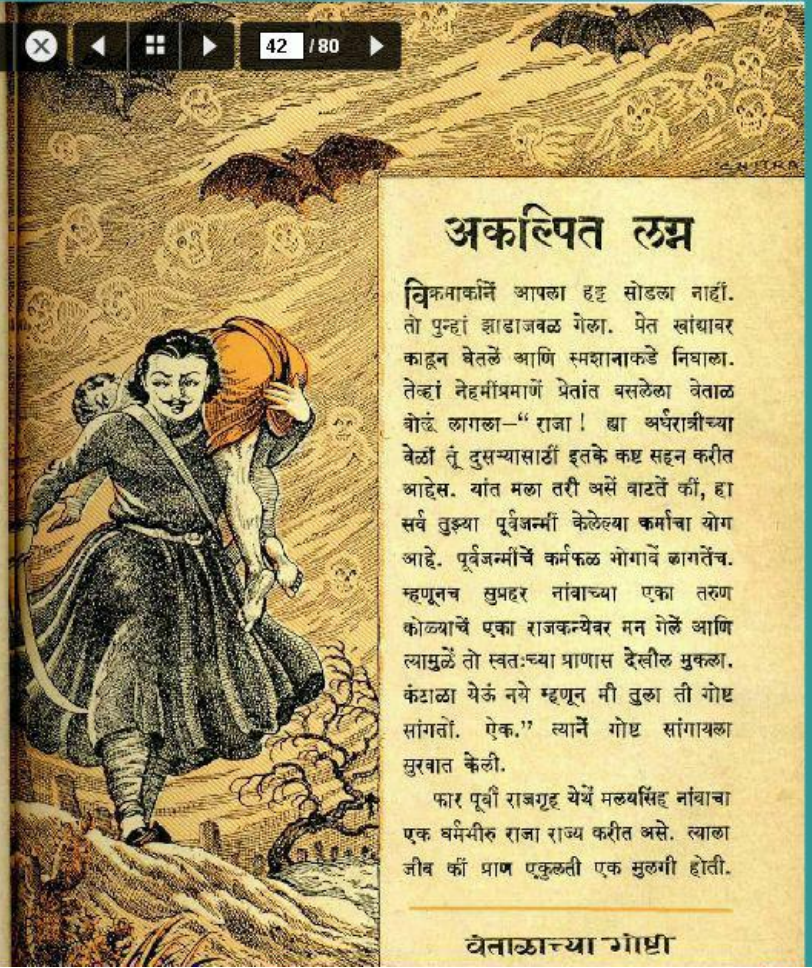 42 / 80
CHITRA
अकल्पित लग्न
विक्रमार्कानें आपला हट्ट सोडला नाहीं.
तो पुन्हां झाडाजवळ गेला. प्रेत खांद्यावर
काढून घेतलें आणि स्मशानाकडे निघाला.
तेव्हां नेहमींप्रमाणें प्रेतांत बसलेला वेताळ
बोलूं लागला—“ राजा ! ह्या अर्धरात्रीच्या
वेळीं तूं दुसऱ्यासाठीं इतके कष्ट सहन करीत
आहेस. यांत मला तरी असें वाटतें कीं, हा
सर्व तुझ्या पूर्वजन्मीं केलेल्या कर्माचा योग
आहे. पूर्वजन्मींचें कर्मफळ भोगावें लागतेंच.
म्हणूनच सुप्रहर नांवाच्या एका तरुण
कोळ्याचें एका राजकन्येवर मन गेलें आणि
त्यामुळें तो स्वतःच्या प्राणास देखील मुकला.
कंटाळा येऊं नये म्हणून मी तुला ती गोष्ट
सांगतों. ऐक.” त्यानें गोष्ट सांगायला
सुरवात केली.
फार पूर्वी राजगृह येथें मलयसिंह नांवाचा
एक धर्मभीरु राजा राज्य करीत असे. त्याला
जीव कीं प्राण एकुलती एक मुलगी होती.
वेताळाच्या गोष्टी